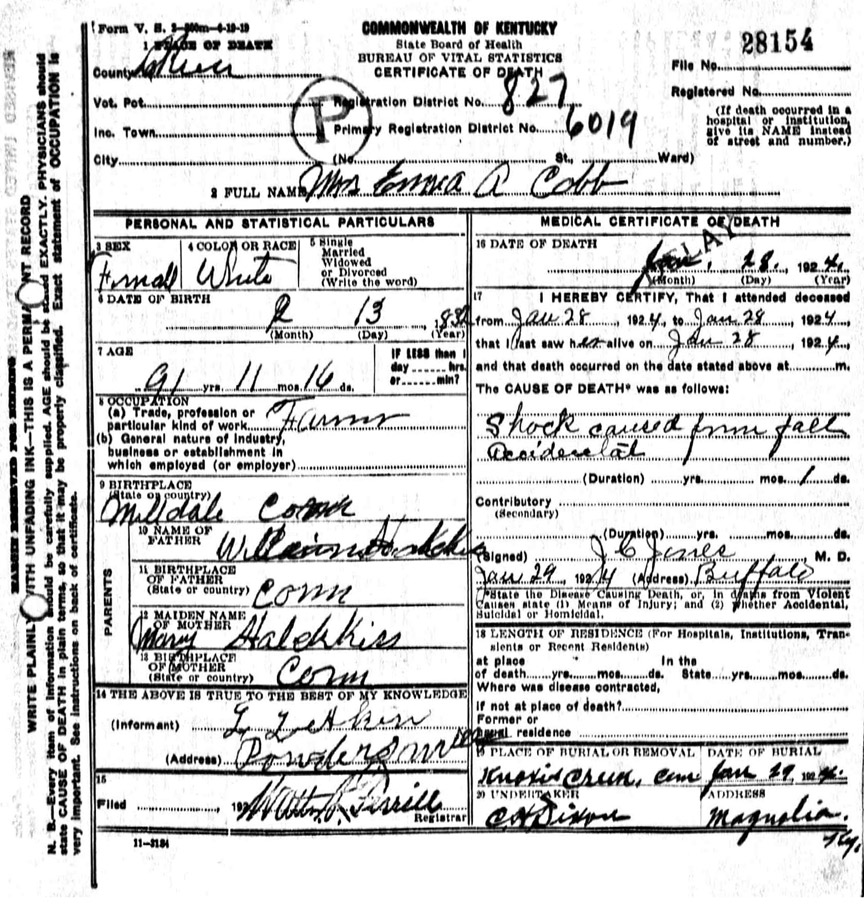 Form V. S. 3-200m-4-19-19
COMMONWEALTH OF KENTUCKY
State Board of Health
BUREAU OF VITAL STATISTICS
CERTIFICATE OF DEATH
28154
File No.
Registered No.
(If death occurred in a hospital or institution, give its NAME instead of street and number.)
1 PLACE OF DEATH
County Green
Vot. Pct.
Inc. Town
City
P
Registration District No. 827
Primary Registration District No. 6019
(No. St., Ward)
2 FULL NAME Mrs Emma A Cobb
PERSONAL AND STATISTICAL PARTICULARS
3 SEX
Female
4 COLOR OR RACE
White
5 Single
Married
Widowed
or Divorced
(Write the word)
6 DATE OF BIRTH
2 13 1832
(Month) (Day) (Year)
7 AGE
91 yrs. 11 mos. 16 ds.
IF LESS than 1
day hrs.
or min?
8 OCCUPATION
(a) Trade, profession or
particular kind of work Farmer
(b) General nature of industry,
business or establishment in
which employed (or employer)
9 BIRTHPLACE
(State or country)
Milldale Conn
PARENTS
10 NAME OF
FATHER
William
11 BIRTHPLACE
OF FATHER
(State or country)
Conn
12 MAIDEN NAME
OF MOTHER
Mary Haldkiss
13 BIRTHPLACE
OF MOTHER
(State or country)
Conn
14 THE ABOVE IS TRUE TO THE BEST OF MY KNOWLEDGE
(Informant) L Z Akin
(Address)
15
Filed , 192
Registrar
11-3184
MEDICAL CERTIFICATE OF DEATH
DELAY
16 DATE OF DEATH
Jan. 28, 1924
(Month) (Day) (Year)
17 I HEREBY CERTIFY, That I attended deceased
from Jan 28, 1924, to Jan 28, 1924
that I last saw her alive on Jan 28, 1924
and that death occurred on the date stated above at m.
The CAUSE OF DEATH* was as follows:
Shock caused from fall
Accidental
(Duration) yrs. mos. 1 ds.
Contributory
(Secondary)
(Duration) yrs. mos. ds.
(Signed) J C Jones M. D.
Jan 29 1924 (Address) Buffalo
*State the Disease Causing Death, or, in deaths from Violent
Causes state (1) Means of Injury; and (2) whether Accidental,
Suicidal or Homicidal.
18 LENGTH OF RESIDENCE (For Hospitals, Institutions, Transients or Recent Residents)
at place In the
of death yrs. mos. ds. State yrs. mos. ds.
Where was disease contracted,
if not at place of death?
Former or
usual residence
19 PLACE OF BURIAL OR REMOVAL
DATE OF BURIAL
Cem Jan 29 1924
20 UNDERTAKER
C H Dixon
ADDRESS
Magnolia
Ky.
MARGIN RESERVED FOR BINDING
WRITE PLAINLY WITH UNFADING INK—THIS IS A PERMANENT RECORD
N. B.—Every item of information should be carefully supplied. AGE should be stated EXACTLY. PHYSICIANS should
state CAUSE OF DEATH in plain terms, so that it may be properly classified. Exact statement of OCCUPATION is
very important. See instructions on back of certificate.